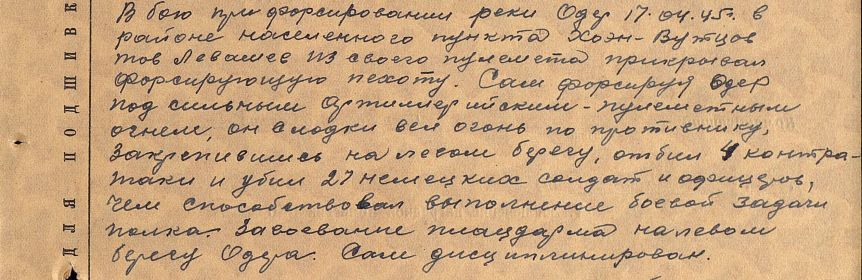 ДЛЯ ПОДШИВК
В бою при форсировании реки Одер 17.04.45г. в
районе населенного пункта Хоэн-Вутцов
тов Левашев из своего пулемета прикрывал
форсирующую пехоту. Сам форсируя Одер
под сильным артиллерийским-пулеметным
огнем, он с лодки вел огонь по противнику,
Закрепившись на левом берегу, отбил 4 контра-
таки и убил 27 немецких солдат и офицеров,
чем способствовал выполнение боевой задачи
полка. Завоевание плацдарма на левом
берегу Одера. Сам дисциплинирован.